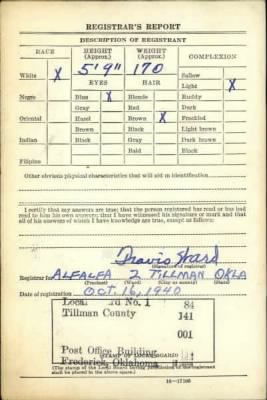 REGISTRAR'S REPORT
DESCRIPTION OF REGISTRANT
RACE HEIGHT (Approx.) WEIGHT (Approx.) COMPLEXION
5'9" 170
White X EYES HAIR Sallow
Light X
Negro Blue X Blonde Ruddy
Gray Red Dark
Oriental Hazel Brown X Freckled
Brown Black Light brown
Indian Black Gray Dark brown
Bald Black
Filipino
Other obvious physical characteristics that will aid in identification
I certify that my answers are true; that the person registered has read or has had
read to him his own answers; that I have witnessed his signature or mark and that
all of his answers of which I have knowledge are true, except as follows:
Travis
(Signature of registrar)
Registrar for ALFALFA 2 TILLMAN OKLA
(Precinct) (Ward)
Date of registration OCT. 16, 1940
Local Bd No. 1 84
Tillman County 141
001
Post Office Building
(STAMP OF LOCAL BOARD)
Frederick, Oklahoma
(The stamp of the Local Board having jurisdiction of the registrant
shall be placed in the above space.)
16-17105